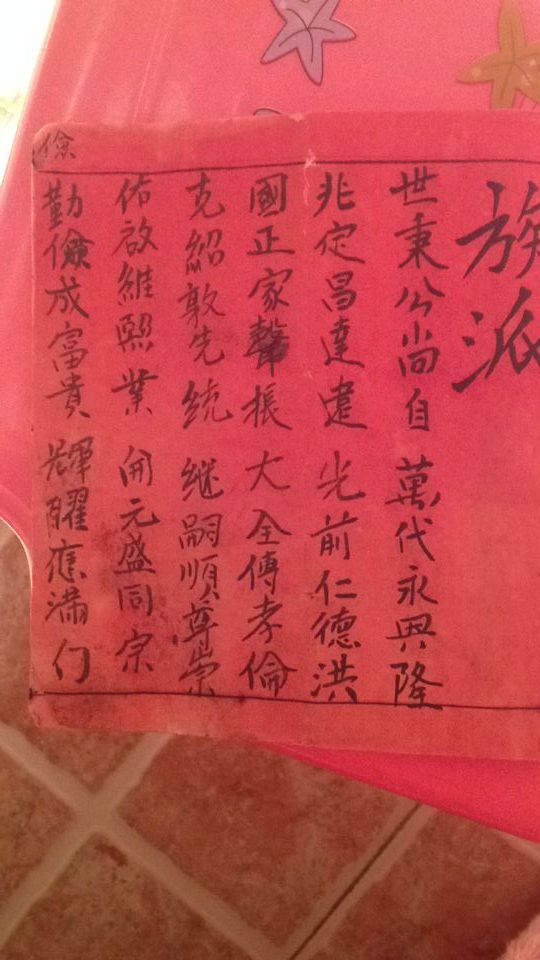 族派
世秉公尚自 萬代永興隆
兆定昌達遠 光前仁德洪
國正家聲振 大全傳孝倫
克紹敦先統 继嗣順尊崇
佑啟維熙業 開元盛同宗
勤儉成富貴 輝耀應滿门
儉